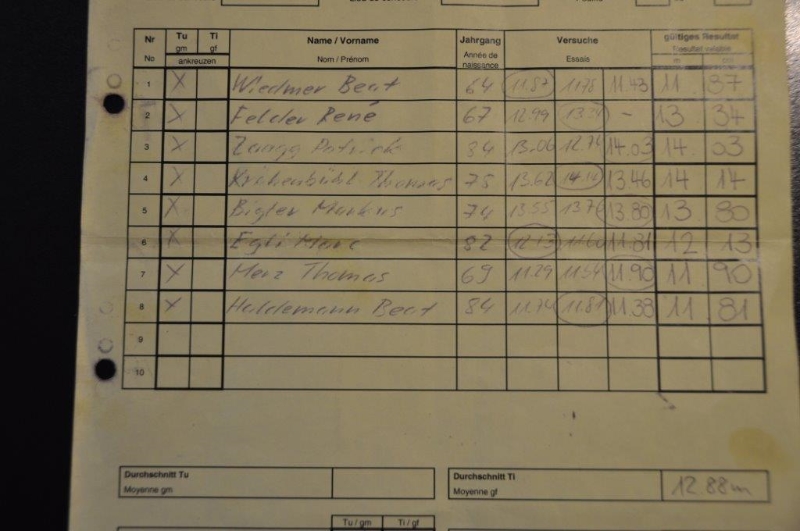 Nr Tu Ti Name / Vorname Jahrgang Versuche gültiges Resultat
No gm gf Nom / Prénom Année de naissance Essais Résultat valable
ankreuzen
1 X Wiedmer Beat 64 11.87 11.78 11.43 11 87
2 X Felder René 67 12.99 13.34 - 13 34
3 X Zaugg Patrick 84 13.06 12.74 14.03 14 03
4 X Krähenbühl Thomas 75 13.62 14.14 13.46 14 14
5 X Bigler Markus 74 13.55 13.76 13.80 13 80
6 X Egli Marc 82 12.13 11.60 11.81 12 13
7 X Merz Thomas 69 11.29 11.54 11.90 11 90
8 X Haldemann Beat 84 11.74 11.81 11.38 11 81
9
10
Durchschnitt Tu Durchschnitt Ti
Moyenne gm Moyenne gf 12.88m
Tu / gm Ti / gf